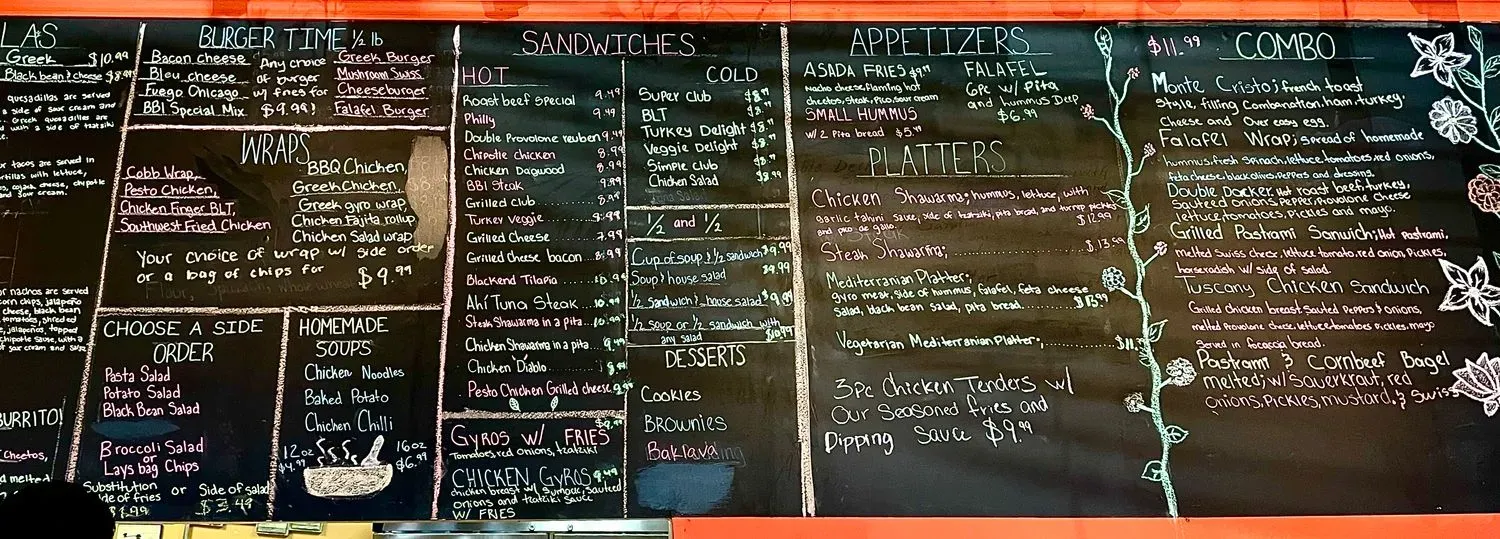 LAS
Greek $10.99
Black bean & cheese
quesadillas are served
a side of sour cream and
Greek quesadillas are
with a side of tzatziki
tacos are served in
tortillas with lettuce,
cojack cheese, chipotle
and sour cream.
or nachos are served
corn chips, jalapeño
cheese, black bean
tomatoes, shredded
jalapeños, topped
chipotle sauce, with a
sour cream and salsa
BURRITO
Cheetos,
melted
BURGER TIME ½ lb
Bacon cheese
Bleu cheese
Fuego Chicago
BBI Special Mix
Any choice
of burger
w/ fries for
$9.99!
Greek Burger
Mushroom Swiss
Cheeseburger
Falafel Burger
WRAPS
Cobb Wrap,
Pesto Chicken,
Chicken Finger BLT,
Southwest Fried Chicken
BBQ Chicken,
Greek Chicken,
Greek gyro wrap
Chicken Fajita rollup
Chicken Salad wrap
Your choice of wrap w/ side order
or a bag of chips for $9.99
CHOOSE A SIDE
ORDER
Pasta Salad
Potato Salad
Black Bean Salad
Broccoli Salad
or
Lays bag Chips
Substitution or Side of salad
side of fries
$1.99
HOMEMADE
SOUPS
Chicken Noodles
Baked Potato
Chicken Chilli
12oz 16oz
$4.99 $6.99
SANDWICHES
HOT
Roast beef special 9.49
Philly 9.49
Double Provolone reuben 9.49
Chipotle Chicken 8.99
Chicken Dagwood 8.99
BBI Steak 9.99
Grilled Club 8.99
Turkey Veggie 8.99
Grilled Cheese 7.99
Grilled cheese bacon 8.99
Blackend Tilapia
Ahi Tuna Steak
Steak Shawarma in a pita
Chicken Shawarma in a pita 9.49
Chicken Diablo 8.99
Pesto Chicken Grilled cheese 9.99
Gyros w/ FRIES $9.99
Tomatoes, red onions, tzatziki
CHICKEN Gyros 9.49
chicken breast w/ Sumack, Sauteed
onions and tzatziki sauce
W/ FRIES
COLD
Super Club
BLT
Turkey Delight
Veggie Delight
Simple Club
Chicken Salad
½ and ½
Cup of soup & ½ sandwich $9.99
Soup & house salad $9.99
½ sandwich & house salad $9.99
½ soup or ½ sandwich with
any salad $10.99
DESSERTS
Cookies
Brownies
Baklava
APPETIZERS
ASADA FRIES $9.99
Nacho cheese, flaming hot
cheetos, steak, pico, sour cream
SMALL HUMMUS
w/ 2 Pita bread $5.99
FALAFEL
6pc w/ Pita
and hummus Deep
$6.99
PLATTERS
Chicken Shawarma; hummus, lettuce, with
garlic tahini sauce, side of tzatziki, pita bread, and turnip pickles
and pico de gallo. $12.99
Steak Shawarma; $13.99
Mediterranean Platter;
gyro meat, side of hummus, falafel, feta cheese
salad, black bean salad, pita bread. $13.99
Vegetarian Mediterranean Platter;
3pc Chicken Tenders w/
Our Seasoned fries and
Dipping Sauce $9.99
$11.99 COMBO
Monte Cristo; french toast
style, filling Combanation, ham, turkey,
Cheese and Over easy egg.
Falafel Wrap; spread of homemade
hummus, fresh spinach, lettuce, tomatoes, red onions,
feta cheese, black olives, Peppers and dressing.
Double Decker, Hot roast beef, turkey,
sauteed onions, Pepper, Provolone Cheese
lettuce, tomatoes, Pickles and mayo.
Grilled Pastrami Sanwich; Hot pastrami,
melted Swiss cheese, lettuce, tomato, red onion, Pickles,
horseradish w/ side of salad.
Tuscany Chicken Sandwich
Grilled chicken breast Sauted Peppers & onions,
melted Provolone cheese, lettuce, tomatoes, Pickles, mayo
Served in focaccia bread.
Pastrami & Cornbeef Bagel
melted; w/ sauerkraut, red
onions, Pickles, mustard, & Swiss